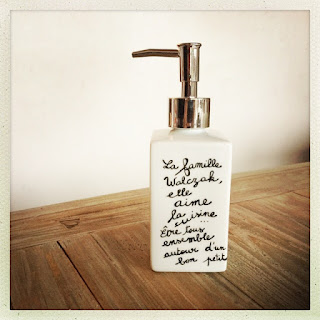 La famille
Walczak,
elle
aime
la cuisine
Être tous
ensemble
autour d'un
bon petit